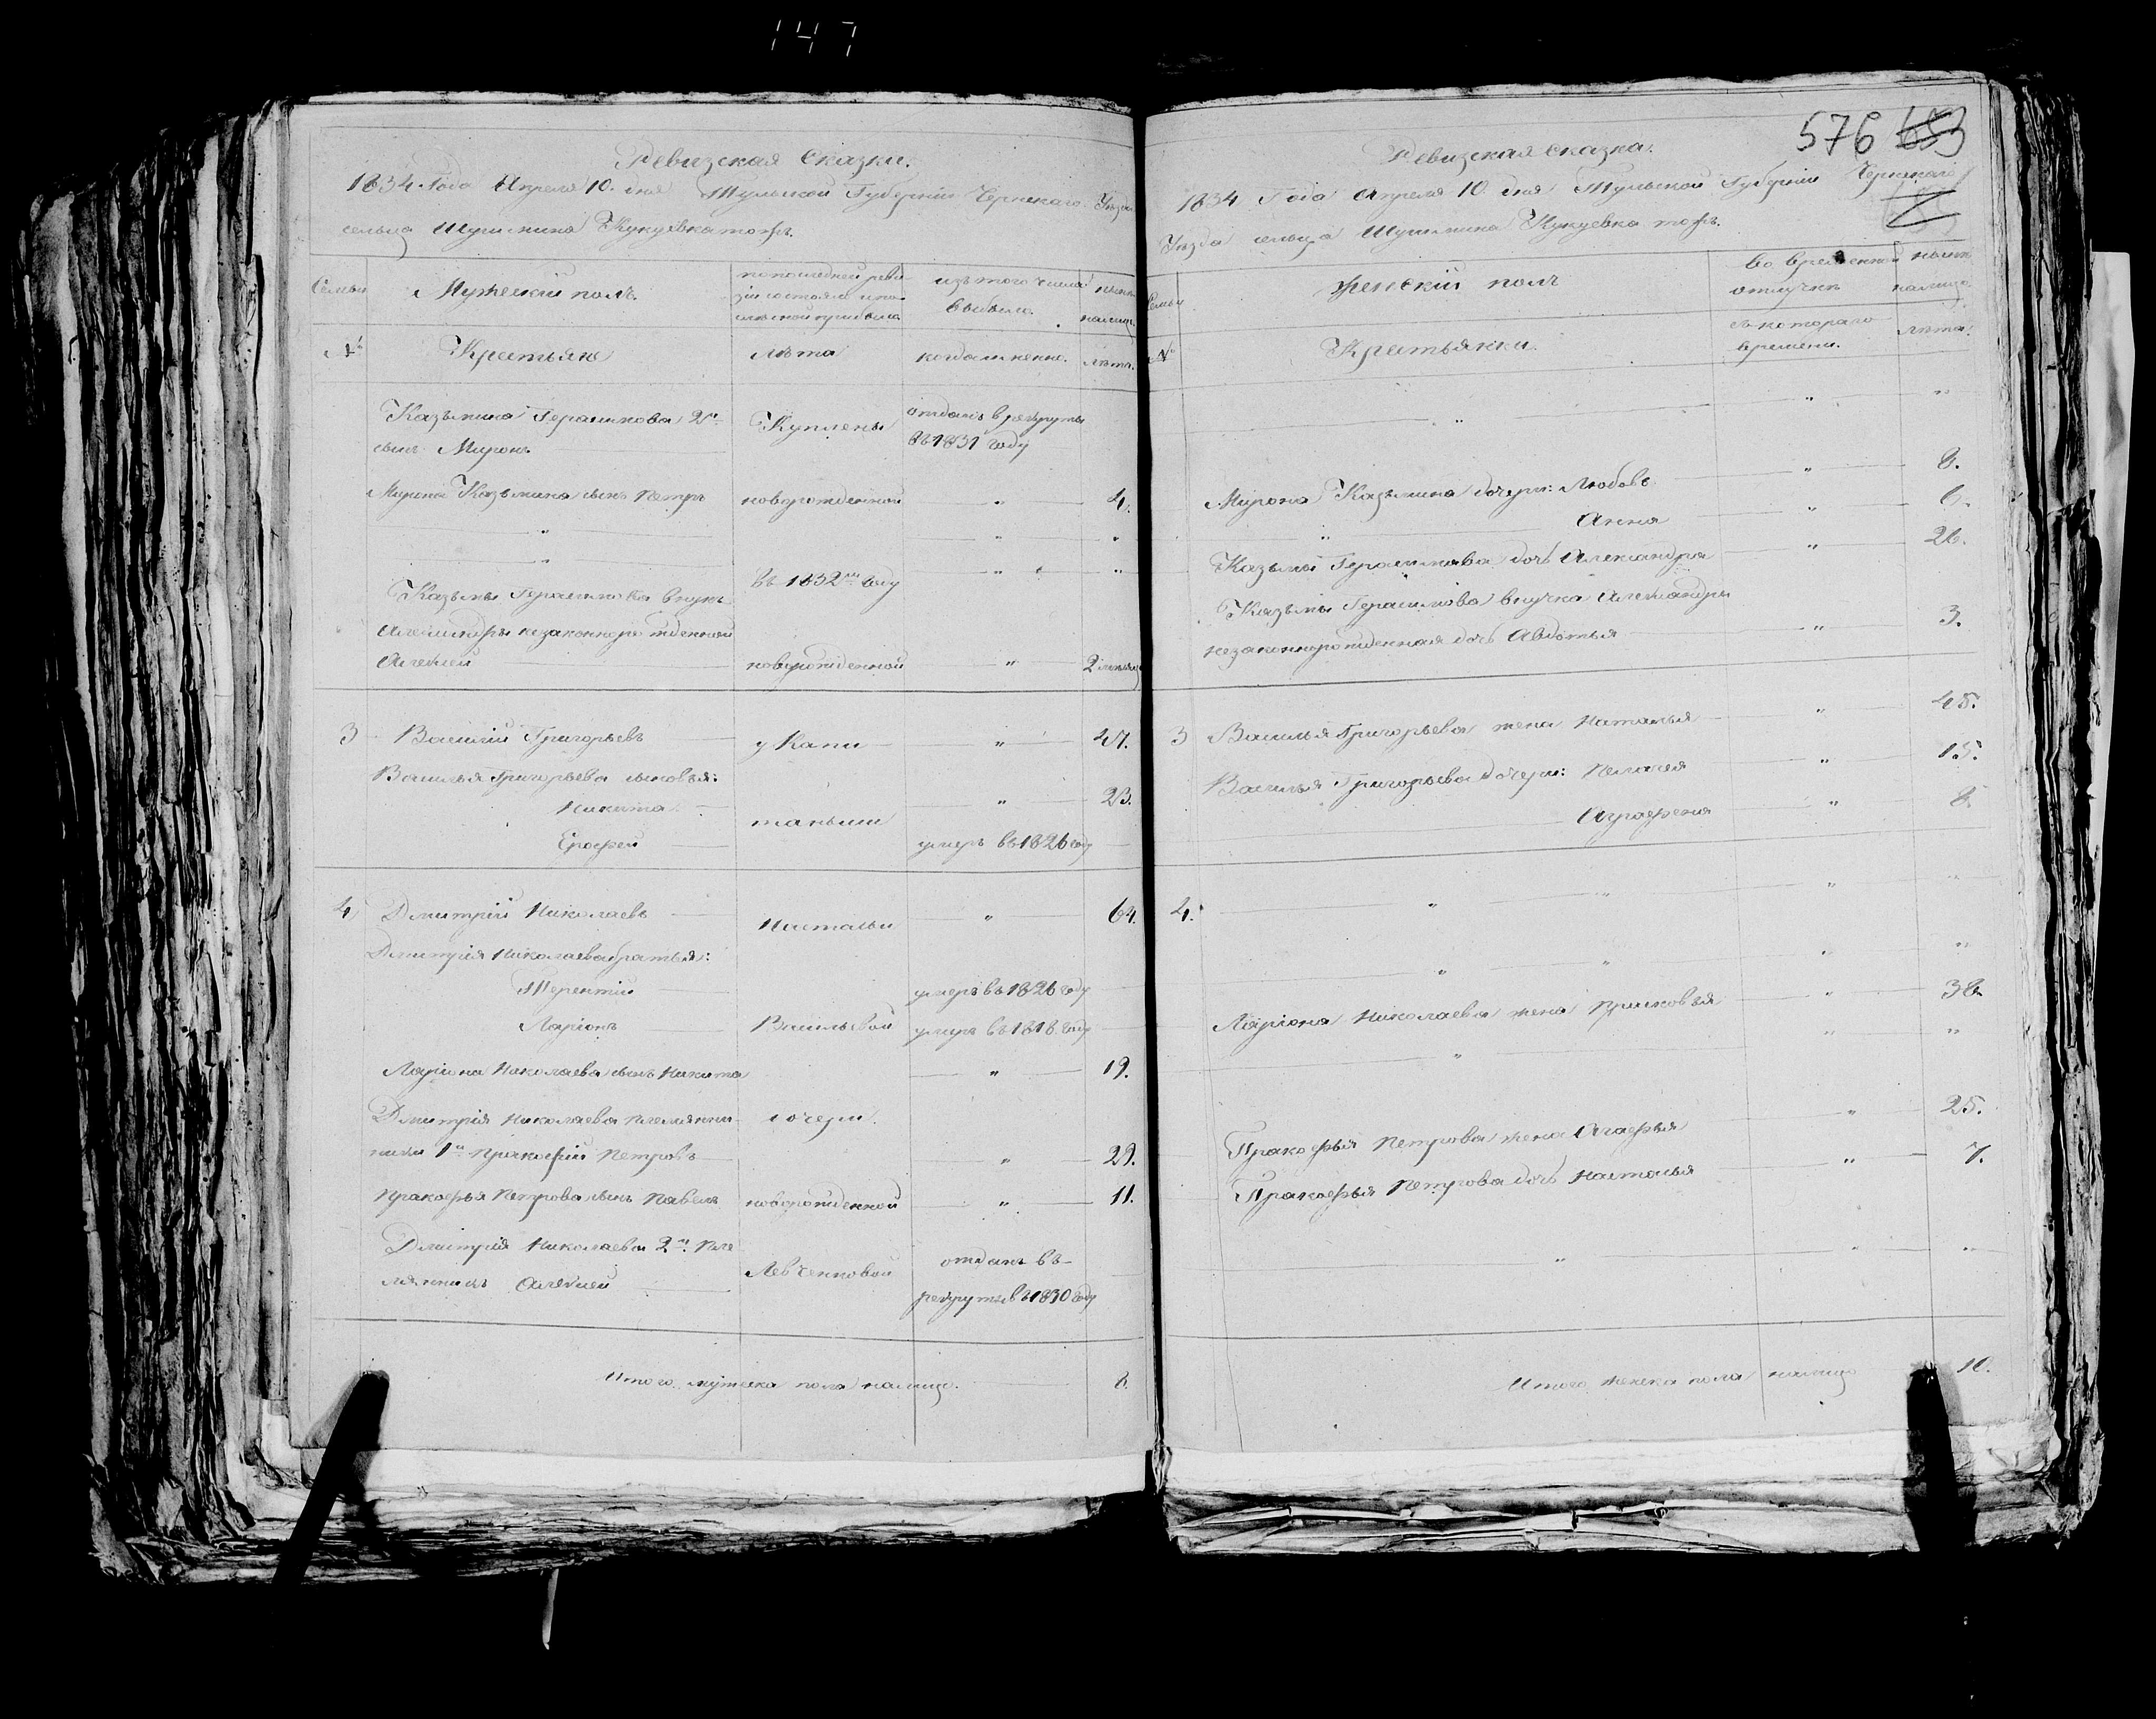 147
Ревизская сказка.
1834 Года Апреля 10. дня Тульской Губерніи Чернскаго Уезда
сельца Шушмина Кукуевка тожъ.
Семьи
Мужескій полъ.
по последней реви
зіи состояло и по
изъ того числа
выбыло.
ныне
налицо.
№
Крестьяне
Лѣта
когда именно.
лѣта.
Казьмина Герасимова 2й
сынъ Миронъ
Куплены
отданъ в рекруты
въ 1831 году
Мирона Казьмина сынъ Петръ
новорожденной
" 4.
" " "
" " "
Казьмы Герасимова внукъ
Въ 1832мъ году
Александры незаконнорожденной
Алексей
новорожденной
" 2 месяца
3 Василий Григорьевъ
у Капи
" 47.
Василья Григорьева сыновья:
Никита
" 23.
таньши
Ерофей
умеръ въ 1826 году
4 Дмитрій Николаевъ
Натальи
" 64.
Дмитрія Николаева братья:
Терентій
умеръ въ 1826 году
Ларіонъ
Васильевой
умеръ въ 1818 году
Ларіона Николаева сынъ Никита
" 19.
Дмитрія Николаева племянни
дочери.
ники 1й Пракофій Петровъ
" 29.
Пракофья Петрова сынъ Павелъ
новорожденной
" 11.
Дмитрія Николаева 2й пле
мянникъ Алексей
Левченковой
отданъ въ
рекруты въ 1830 году
Итого мужеска пола налицо. 8.
576 653
Ревизская сказка.
1834 Года Апреля 10. дня Тульской Губерніи Чернскаго
Уезда сельца Шушмина Кукуевка тожъ.
Семьи
Женскій полъ
во временной
отлучкѣ
ныне
налицо
№
Крестьянки.
съ котораго
времени.
лѣта.
" " "
Мирона Казьмина дочери: Любовь " 8.
" Анна " 6.
Казьмы Герасимова дочь Александра " 26.
Казьмы Герасимова внучка Александры
незаконнорожденная дочь Авдотья " 3.
3 Василья Григорьева жена Наталья " 45.
Василья Григорьева дочери: Пелагея " 15.
Аграфена " 8.
4. " " " "
" " " "
Ларіона Николаева жена Прасковья " 38.
" " "
Пракофья Петрова жена Агафья " 25.
Пракофья Петрова дочь Наталья " 7.
" " "
Итого женска пола налицо 10.